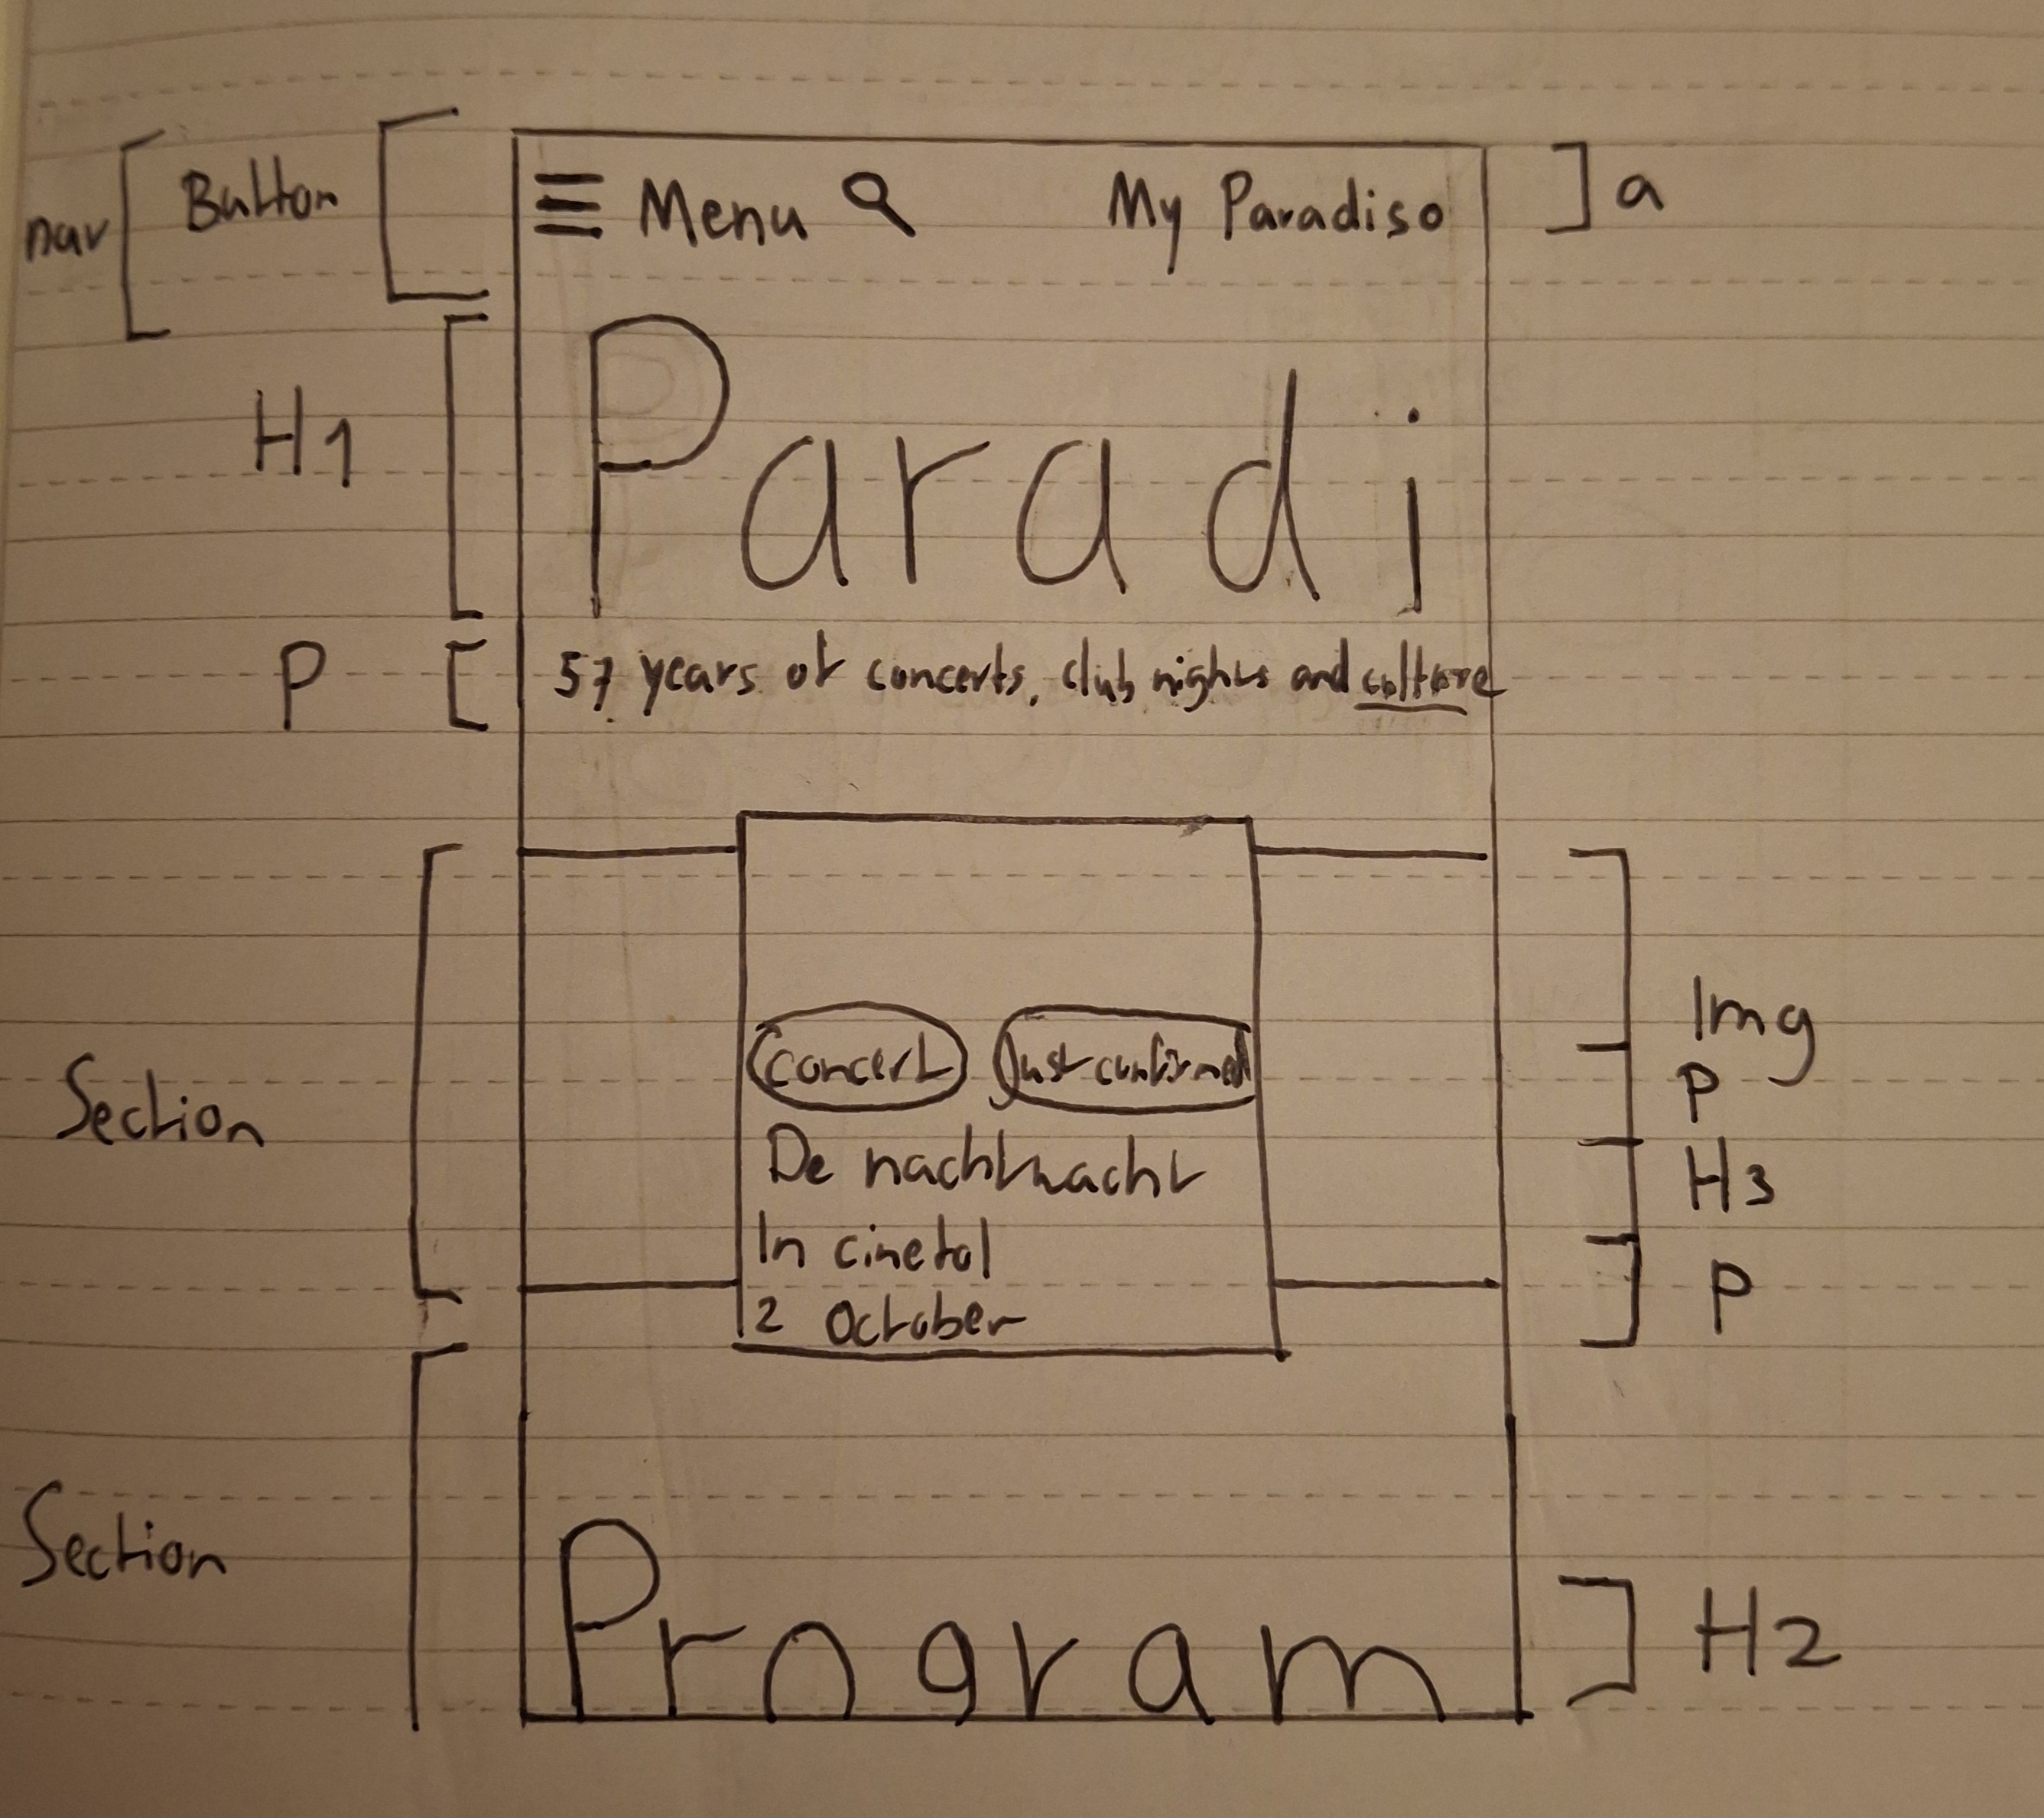 nav
Button
Menu
My Paradiso
a
H1
Paradi
P
57 years of concerts, club nights and culture
Section
Img
concert
Just confirmed
P
De nachtwacht
H3
In cinetol
2 October
P
Section
Program
H2